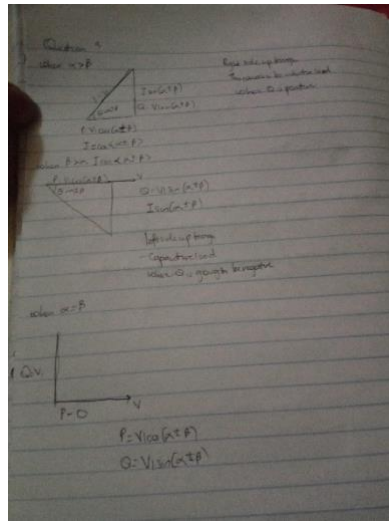 Question
when α>β
I sin(α±β)
Q = VI sin(α±β)
P = VI cos(α±β)
I cos(α±β)
when Q is positive
when β>α I cos(α±β)
P = VI cos(α±β) V
Q = VI sin(α±β)
I sin(α±β)
- Capacitive load
when Q is going to be negative
when α=β
Q.V.
P-O V
P = VI cos(α±β)
Q = VI sin(α±β)